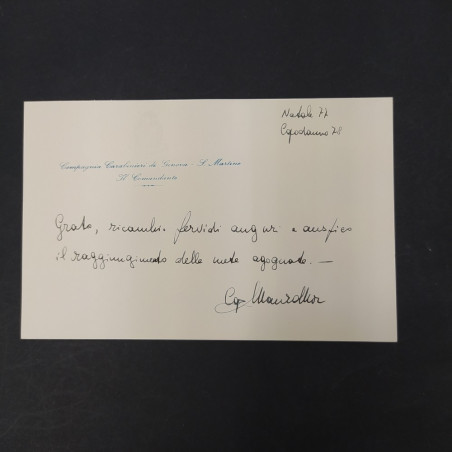 Natale 77
Capodanno 78
Compagnia Carabinieri di Genova - S. Martino
Il Comandante
Grato, ricambio fervidi auguri e auspico
il raggiungimento delle mete agognate. —
Cap.